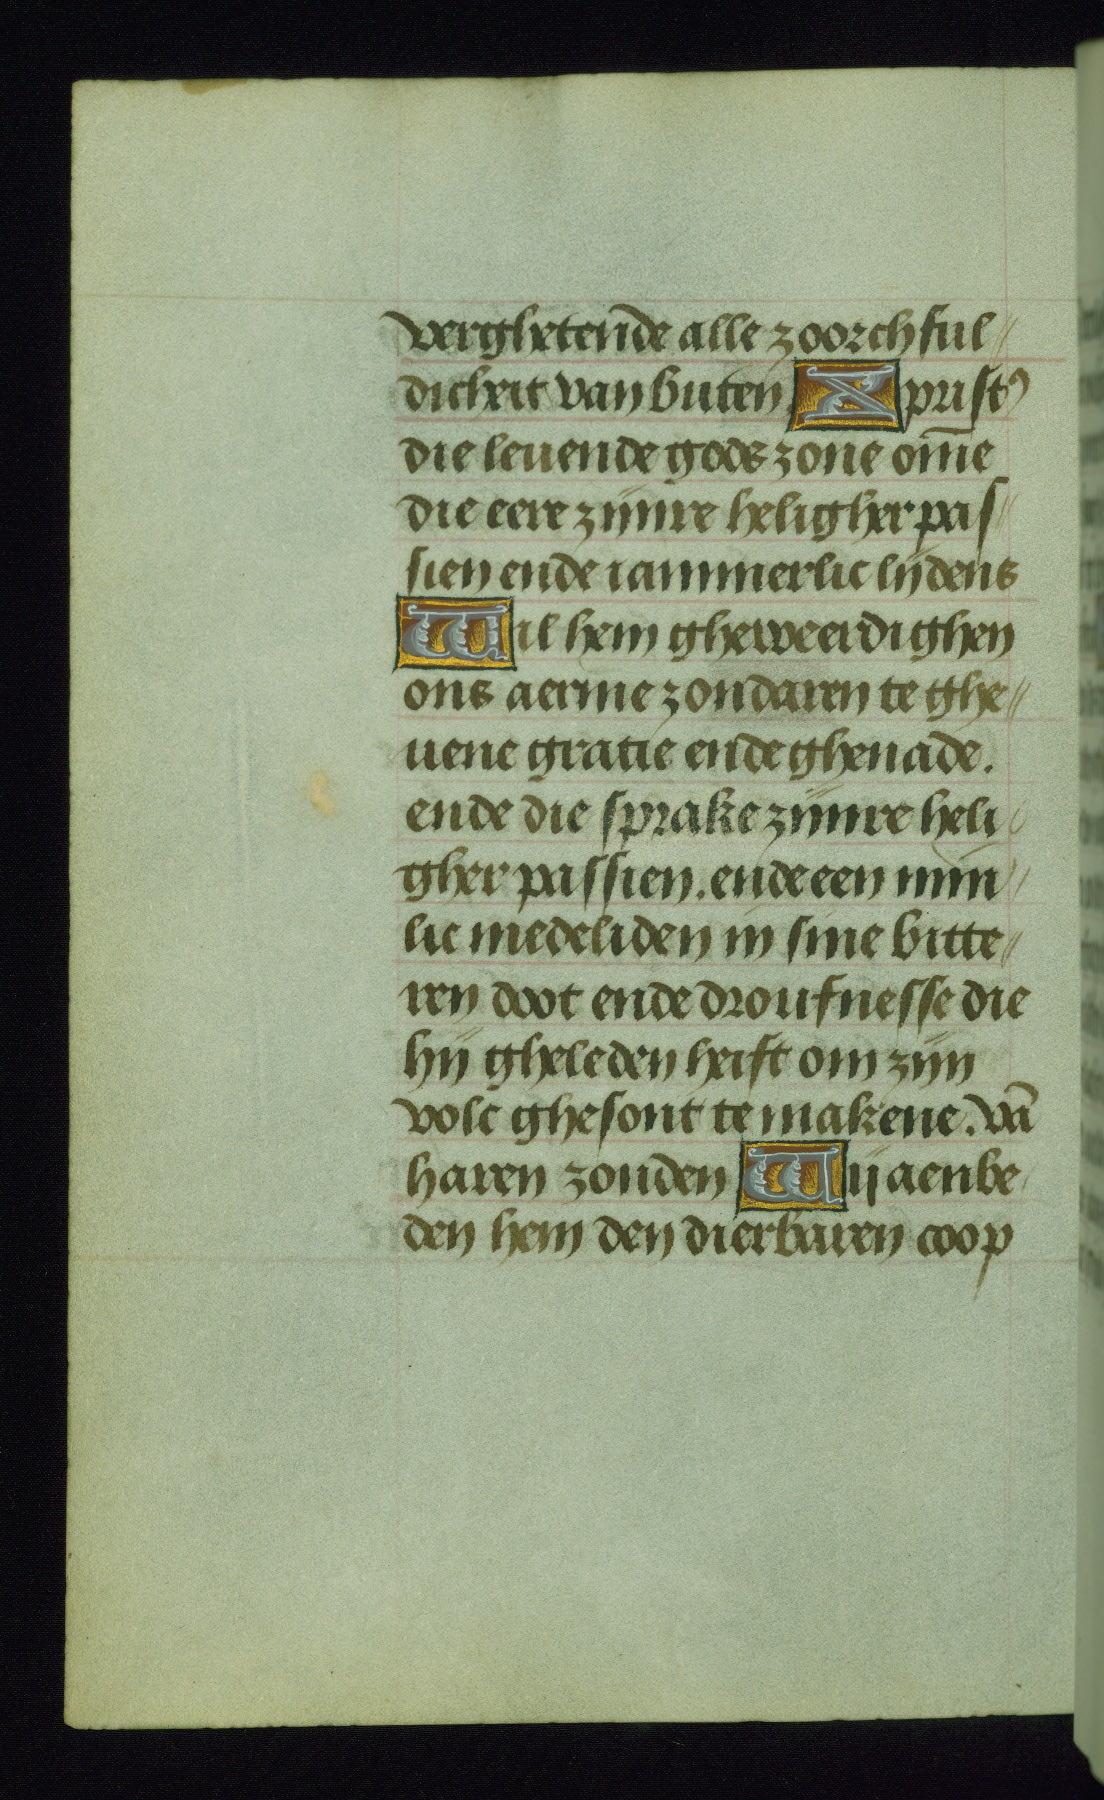 verghetende alle zoorchful//
dicheit van buten Xpristꝰ
die leuende gods zone om̄e
die eere zijnre heligher pas
sien ende iammerlic lijdens
Wil hem gheweerdighen
ons aerme zondaren te ghe//
uene gratie ende ghenade.
ende die sprake zijnre heli
gher passien. ende een min
lic medeliden in sine bitte//
ren doot ende droufnesse die
hij gheleden heift om zijn
volc ghesont te makene. vā
haren zonden Wij aenbe
den hem den dierbaren coop